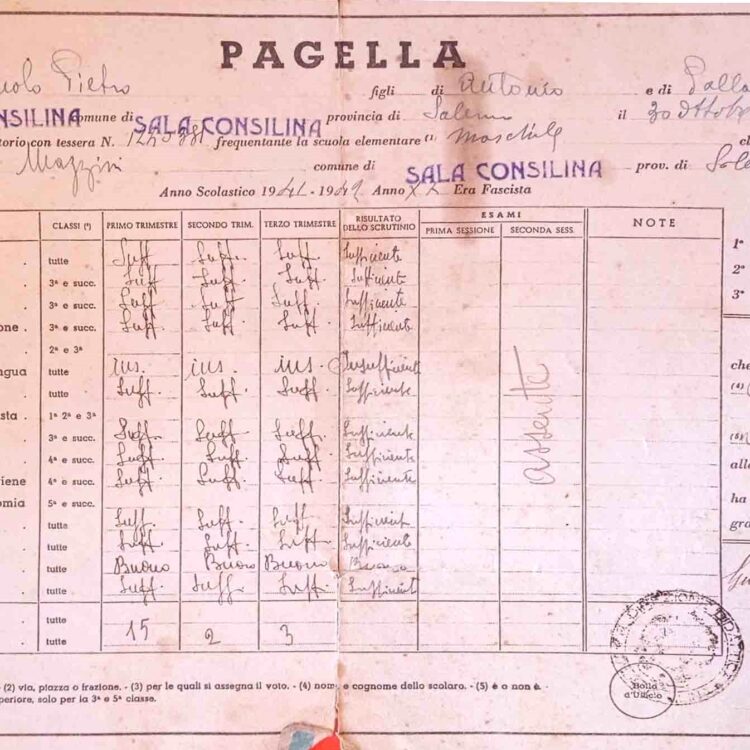 PAGELLA
Pietro figli di Antonio e di
CONSILINA comune di SALA CONSILINA provincia di Salerno il 30 Ottob
torio con tessera N. frequentante la scuola elementare (1) Maschile
Mazzini comune di SALA CONSILINA prov. di
Anno Scolastico 1941 - 1942 Anno XX Era Fascista
CLASSI (*) PRIMO TRIMESTRE SECONDO TRIM. TERZO TRIMESTRE RISULTATO DELLO SCRUTINIO ESAMI PRIMA SESSIONE SECONDA SESS. NOTE
tutte Suff. Suff. Suff. Sufficiente 1ª
3ª e succ. Suff Suff. Suff. Sufficiente 2ª
3ª e succ. Suff Suff Suff. Sufficiente 3ª
one . 3ª e succ. Suff. Suff. Suff. Sufficiente
2ª e 3ª
ngua tutte ins. ins. ins. Insufficient che
tutte Suff. Suff. Suff. Sufficiente (4)
sta . 1ª 2ª e 3ª
3ª e succ. Suff Suff Suff. Sufficiente
4ª e succ. Suff. Suff. Suff. Sufficiente alla
iene 4ª e succ. Suff. Suff. Suff. Sufficiente
omia 5ª e succ. ha
tutte Suff. Suff. Suff Sufficient gra
tutte Suff. Suff. Suff Sufficiente
tutte Buono Buono Buono Buono
tutte Suff. Suff. Suff Sufficient
assente
tutte
tutte 15 2 3
Bollo
d'Ufficio
- (2) via, piazza o frazione. - (3) per le quali si assegna il voto. - (4) nome e cognome dello scolaro. - (5) è o non è.
periore, solo per la 3ª e 5ª classe.